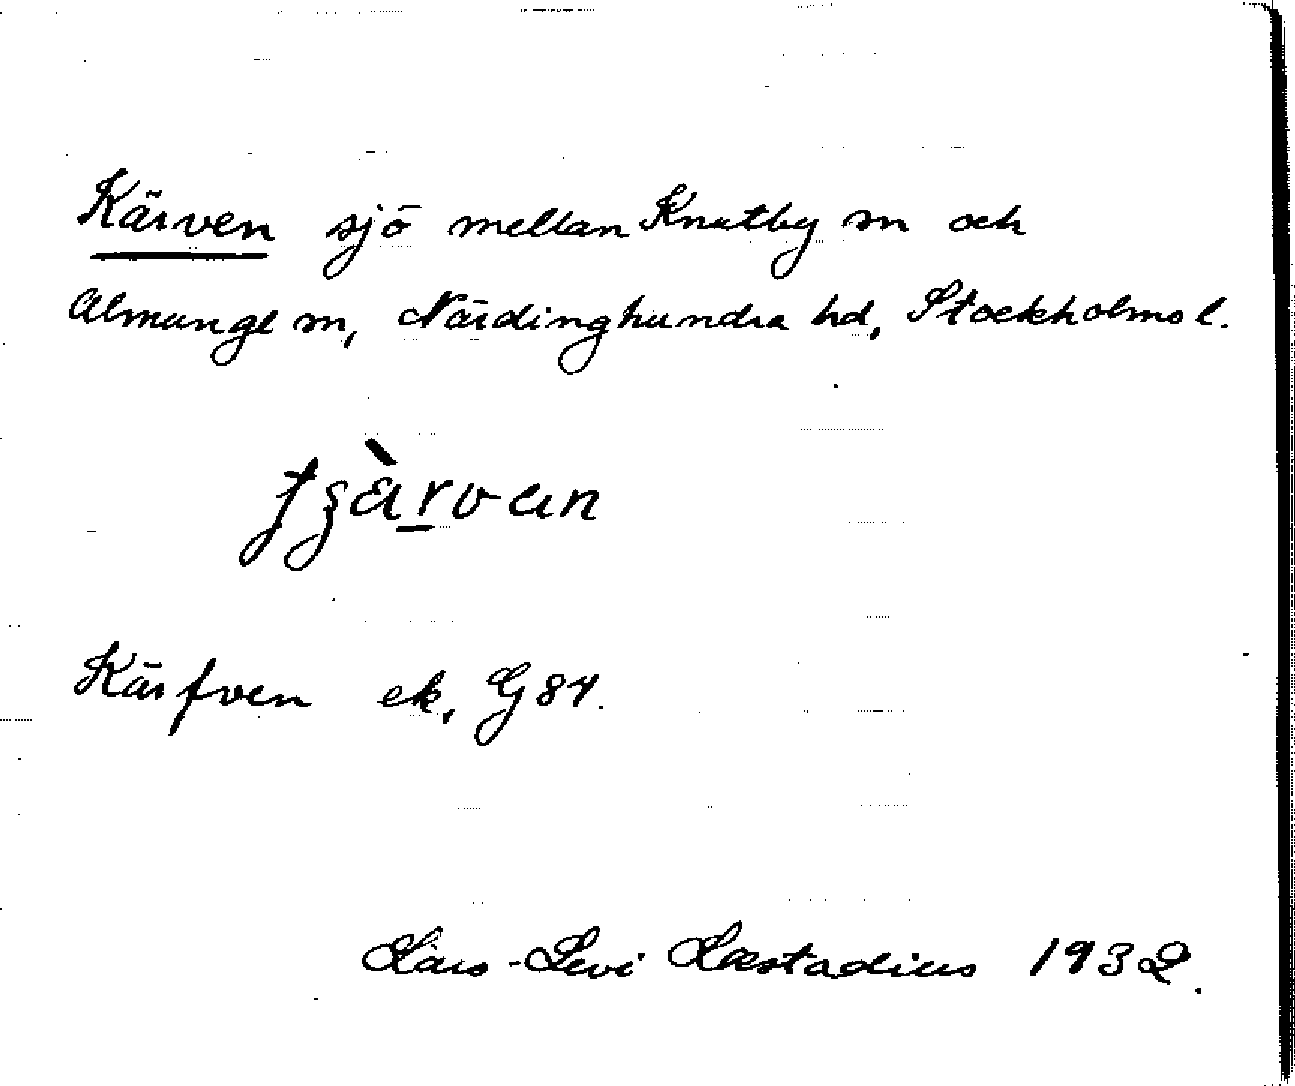 Kärven sjö mellan Knutby sn och
Almunge sn, Närdinghundra hd, Stockholms l.
tʂàrvan
Kärfven ek, G 84.
Lars-Levi Læstadius 1932.